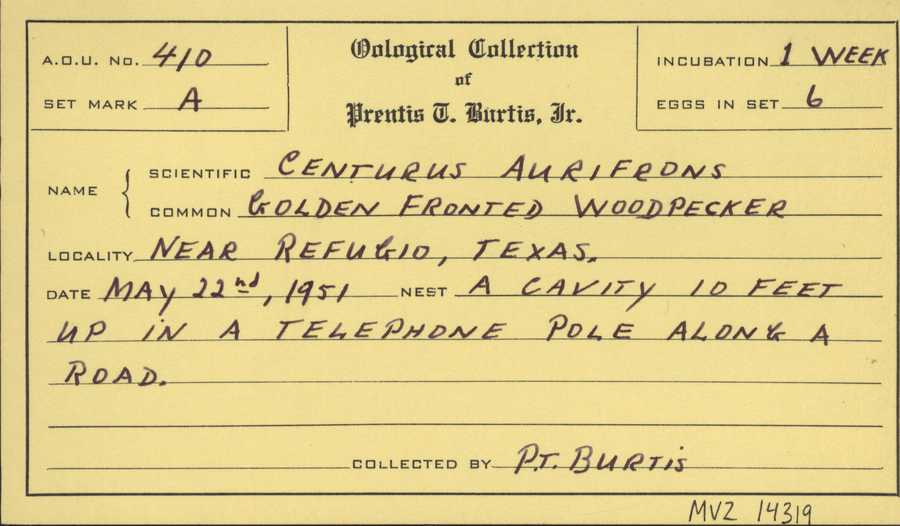 A.O.U. No. 410
Oological Collection
INCUBATION 1 WEEK
SET MARK A
of
EGGS IN SET 6
Prentis T. Burtis, Jr.
NAME
SCIENTIFIC CENTURUS AURIFRONS
COMMON GOLDEN FRONTED WOODPECKER
LOCALITY NEAR REFUGIO, TEXAS.
DATE MAY 22nd, 1951 NEST A CAVITY 10 FEET
UP IN A TELEPHONE POLE ALONG A
ROAD.
COLLECTED BY P.T. BURTIS
MVZ 14319